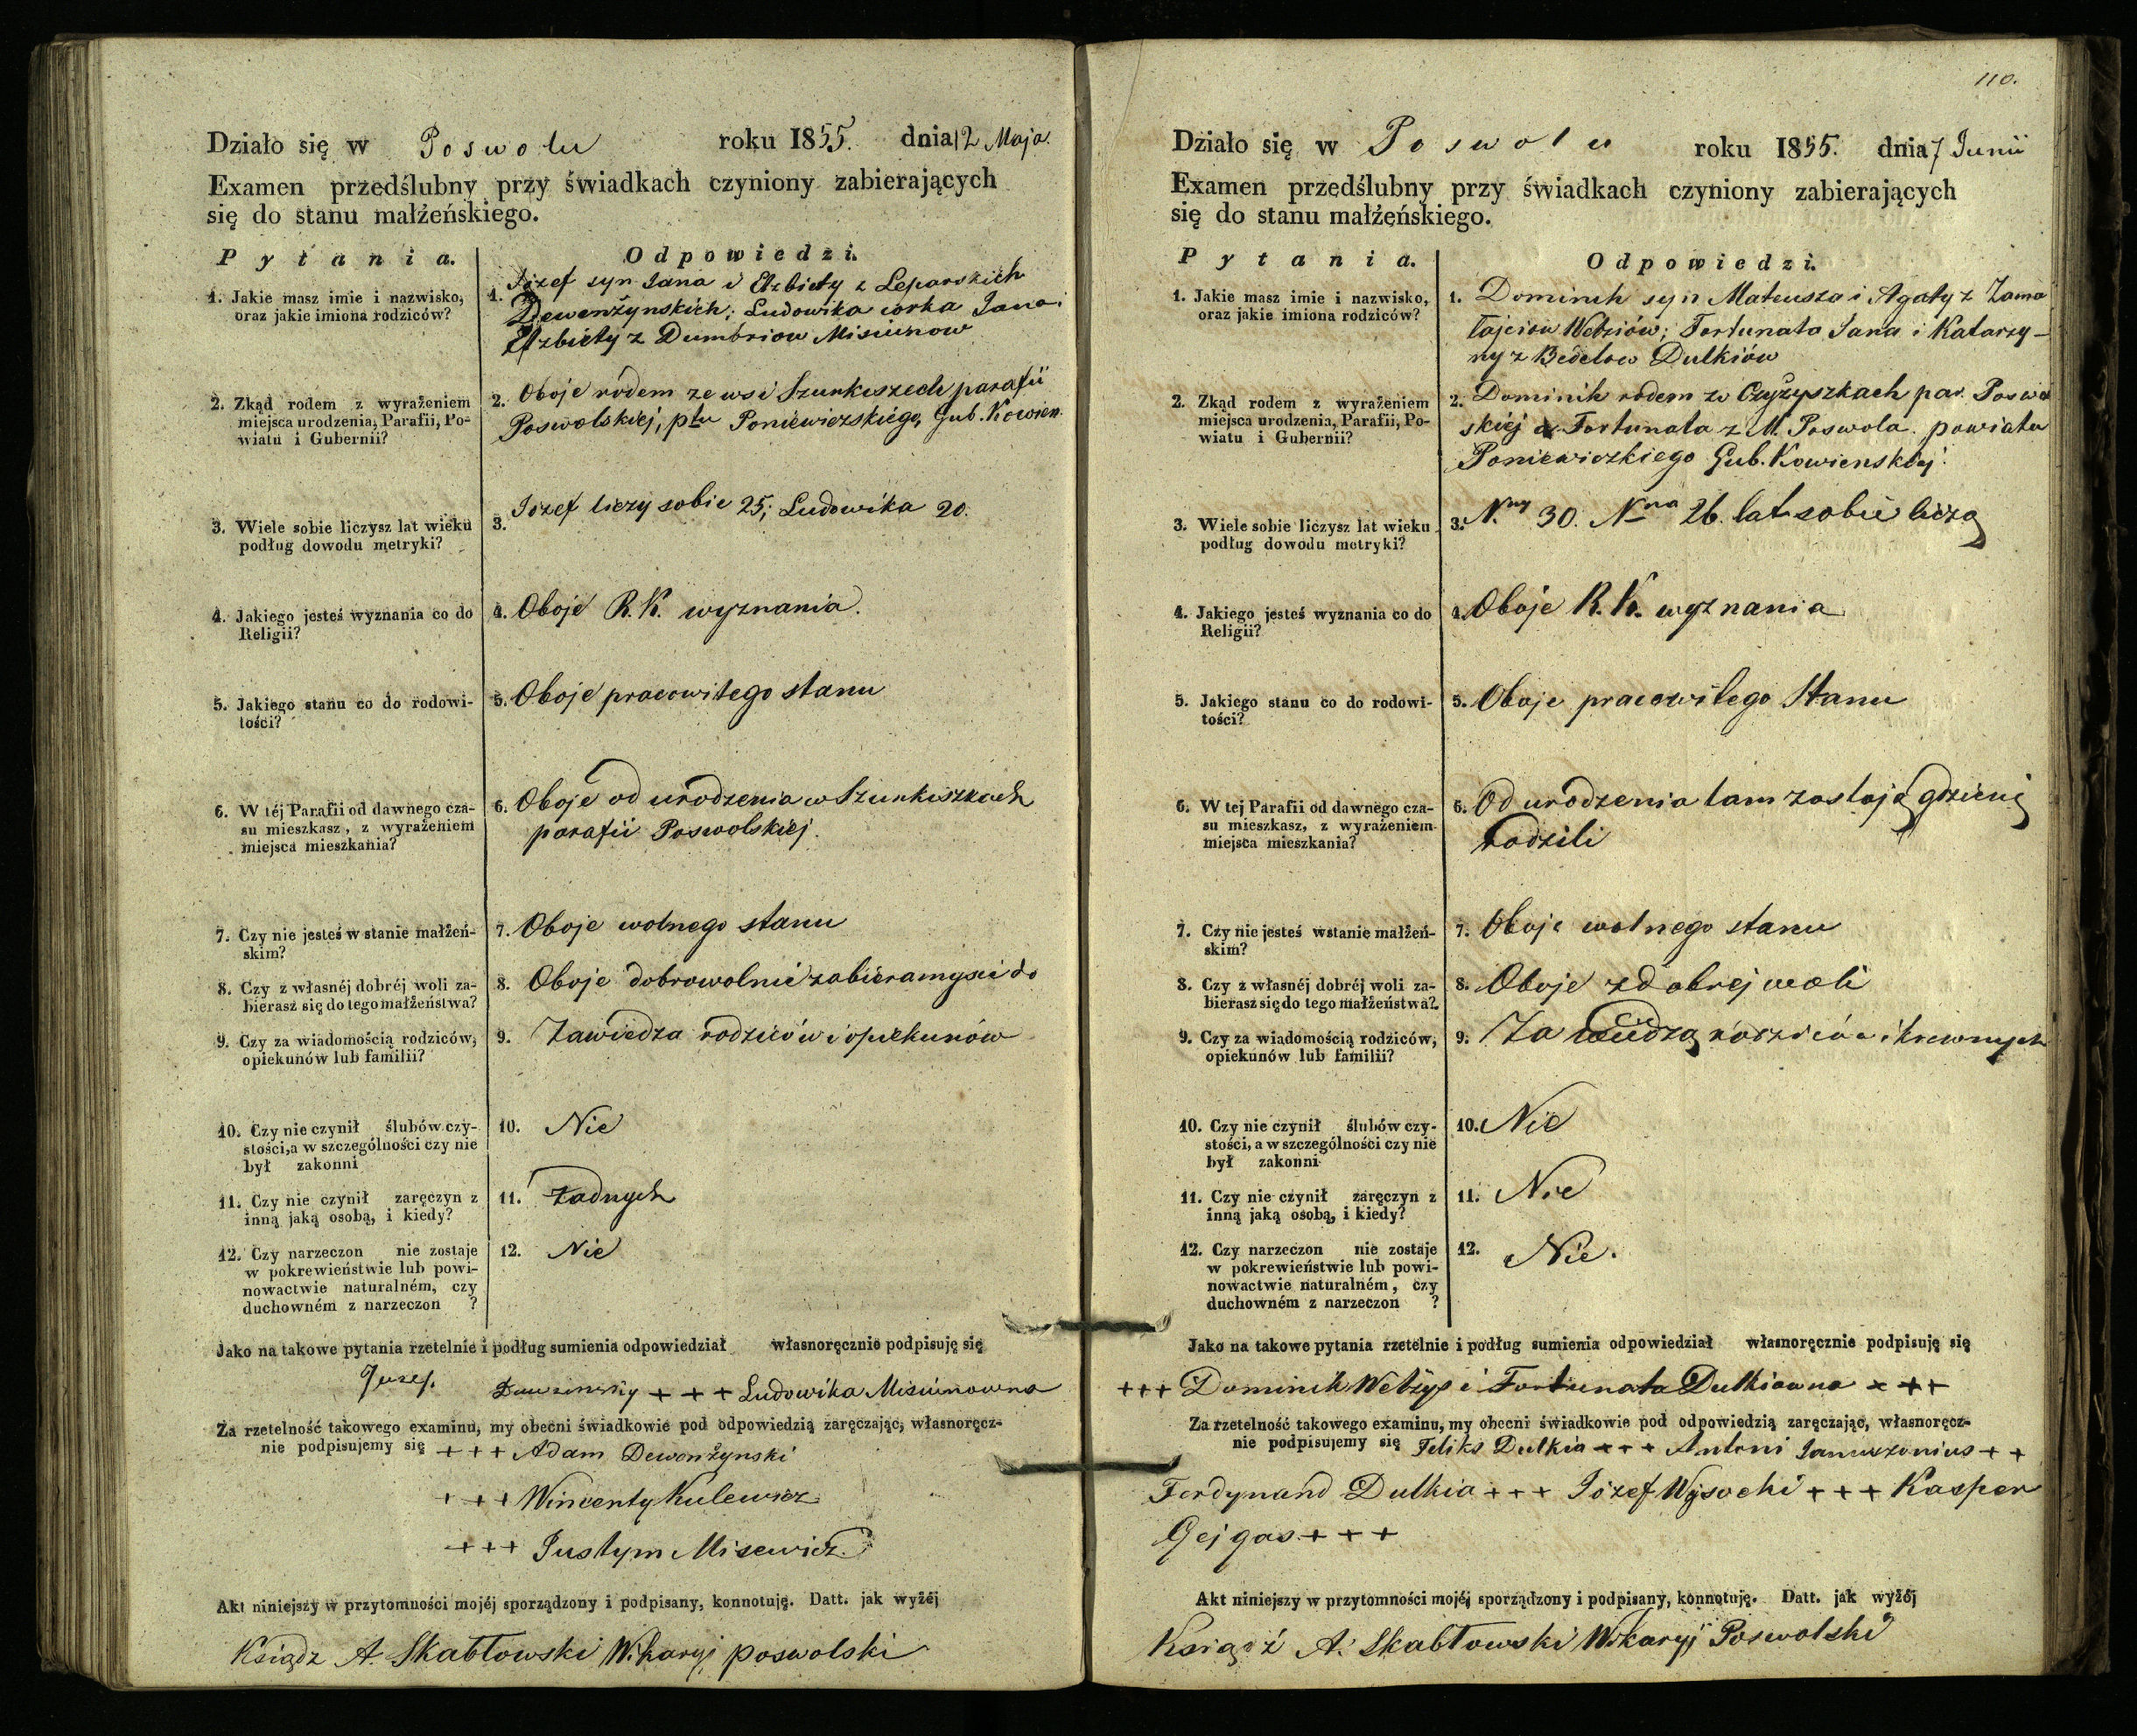 Działo się w Poswolu roku 1855. dnia 12 Maja.
Examen przedślubny przy świadkach czyniony zabierających
się do stanu małżeńskiego.
Pytania. Odpowiedzi.
1. Jakie masz imie i nazwisko,
oraz jakie imiona rodziców?
1. Józef syn Jana i Elzbiety z Leparskich
Dewenżynskich; Ludowika corka Jana i
Elzbiety z Dumbriow Misiunow
2. Zkąd rodem z wyrażeniem
miejsca urodzenia, Parafii, Po-
wiatu i Gubernii?
2. Oboje rodem ze wsi Szunkiszech parafii
Poswolskiej, ptu Poniewiezskiego, Gub. Kowien.
3. Wiele sobie liczysz lat wieku
podług dowodu metryki?
3. Józef liczy sobie 25; Ludowika 20.
4. Jakiego jesteś wyznania co do
Religii?
4. Oboje R. K. wyznania.
5. Jakiego stanu co do rodowi-
tości?
5. Oboje pracowitego stanu
6. W téj Parafii od dawnego cza-
su mieszkasz, z wyrażeniem
miejsca mieszkania?
6. Oboje od urodzenia w Szunkiszkach
parafii Poswolskiej.
7. Czy nie jesteś w stanie małżeń-
skim?
7. Oboje wolnego stanu
8. Czy z własnéj dobréj woli za-
bierasz się do tego małżeństwa?
8. Oboje dobrowolnie zabieramy się do
9. Czy za wiadomością rodziców,
opiekunów lub familii?
9. Zawiedza rodziców i opiekunów
10. Czy nie czynił ślubów czy-
stości, a w szczególności czy nie
był zakonni
10. Nie
11. Czy nie czynił zaręczyn z
inną jaką osobą, i kiedy?
11. Żadnych
12. Czy narzeczon nie zostaje
w pokrewieństwie lub powi-
nowactwie naturalném, czy
duchowném z narzeczon ?
12. Nie
Jako na takowe pytania rzetelnie i podług sumienia odpowiedział własnoręcznie podpisuję się
Juzef. +++ Ludowika Misiunowna
Za rzetelność takowego examinu, my obecni świadkowie pod odpowiedzią zaręczając, własnoręcz-
nie podpisujemy się +++ Adam Dewenżynski
+++ Wincenty Kulewicz
+++ Justyn Misewicz
Akt niniejszy w przytomności mojéj sporządzony i podpisany, konnotuję. Datt. jak wyżéj
Ksiądz A. Skabłowski Wikaryj poswolski
110.
Działo się w Poswolu roku 1855. dnia 7 Junii
Examen przedślubny przy świadkach czyniony zabierających
się do stanu małżeńskiego.
Pytania. Odpowiedzi.
1. Jakie masz imie i nazwisko,
oraz jakie imiona rodziców?
1. Dominik syn Mateusza i Agaty z Zama
łajciow Wełziów; Fortunata Jana i Katarzy-
ny z Bedelow Dulkiów
2. Zkąd rodem z wyrażeniem
miejsca urodzenia, Parafii, Po-
wiatu i Gubernii?
2. Dominik rodem w Czyżyszkach par. Poswol
skiéj a Fortunata z M. Poswola. powiatu
Poniewiezkiego Gub. Kowienskiej.
3. Wiele sobie liczysz lat wieku
podług dowodu metryki?
3. N.ny 30. Nna 26. lat sobie liczą
4. Jakiego jesteś wyznania co do
Religii?
4. Oboje R. K. wyznania
5. Jakiego stanu co do rodowi-
tości?
5. Oboje pracowitego Stanu
6. W tej Parafii od dawnego cza-
su mieszkasz, z wyrażeniem
miejsca mieszkania?
6. Od urodzenia tam zostają gdzie się
rodzili
7. Czy nie jesteś w stanie małżeń-
skim?
7. Oboje wolnego stanu
8. Czy z własnéj dobréj woli za-
bierasz się do tego małżeństwa?
8. Oboje z dobrej woli
9. Czy za wiadomością rodziców,
opiekunów lub familii?
9. Za wiedzą rodziców i krewnych
10. Czy nie czynił ślubów czy-
stości, a w szczególności czy nie
był zakonni
10. Nie
11. Czy nie czynił zaręczyn z
inną jaką osobą, i kiedy?
11. Nie
12. Czy narzeczon nie zostaje
w pokrewieństwie lub powi-
nowactwie naturalném, czy
duchowném z narzeczon ?
12. Nie.
Jako na takowe pytania rzetelnie i podług sumienia odpowiedział własnoręcznie podpisuję się
+++ Dominik Wełżys i Fortunata Dulkiowna +++
Za rzetelność takowego examinu, my obecni świadkowie pod odpowiedzią zaręczając, własnoręcz-
nie podpisujemy się Feliks Dulkia +++ Antoni Januszonius ++
Ferdynand Dulkia +++ Józef Wysocki +++ Kasper
Gejgas +++
Akt niniejszy w przytomności mojéj sporządzony i podpisany, konnotuję. Datt. jak wyżéj
Ksiądz A. Skabłowski Wikaryj Poswolski